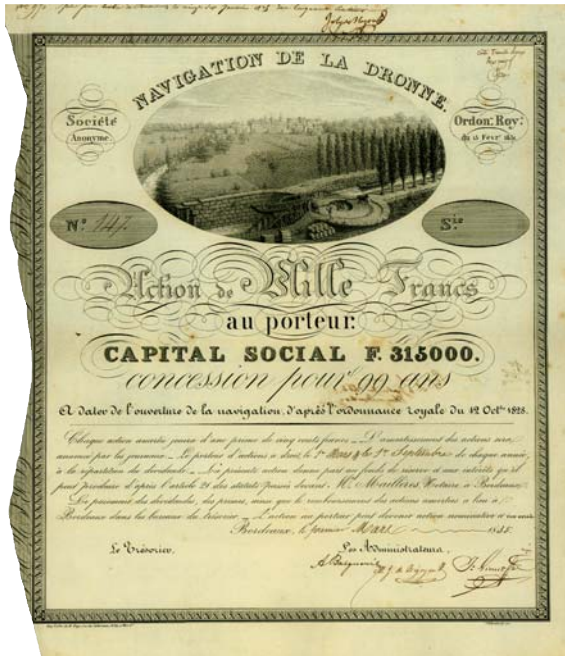 NAVIGATION DE LA DRONNE.
Société
Anonyme
Ordon. Roy.
du 15 Févr.
N.º 147.
S.ie
Action de Mille Francs
au porteur.
CAPITAL SOCIAL F. 315000.
concession pour 99 ans
A dater de l'ouverture de la navigation, d'après l'ordonnance royale du 12 Oct.bre 1828.
Chaque action amortie jouira d'une prime de cinq cents francs _ L'amortissement des actions sera
annoncé par les journaux _ Le porteur d'actions a droit le 1.er Mars & le 1.er Septembre de chaque année,
à la répartition du dividende _ La présente action donne part au fonds de réserve et aux intérêts qu'il
peut produire d'après l'article 21 des statuts passés devant M.e Maillères Notaire à Bordeaux
Le paiement des dividendes, des primes, ainsi que le remboursement des actions amorties a lieu à
Bordeaux dans les bureaux du trésorier _ L'action au porteur peut devenir action nominative et
Bordeaux, le premier Mars 1835.
Le Trésorier,
Les Administrateurs,